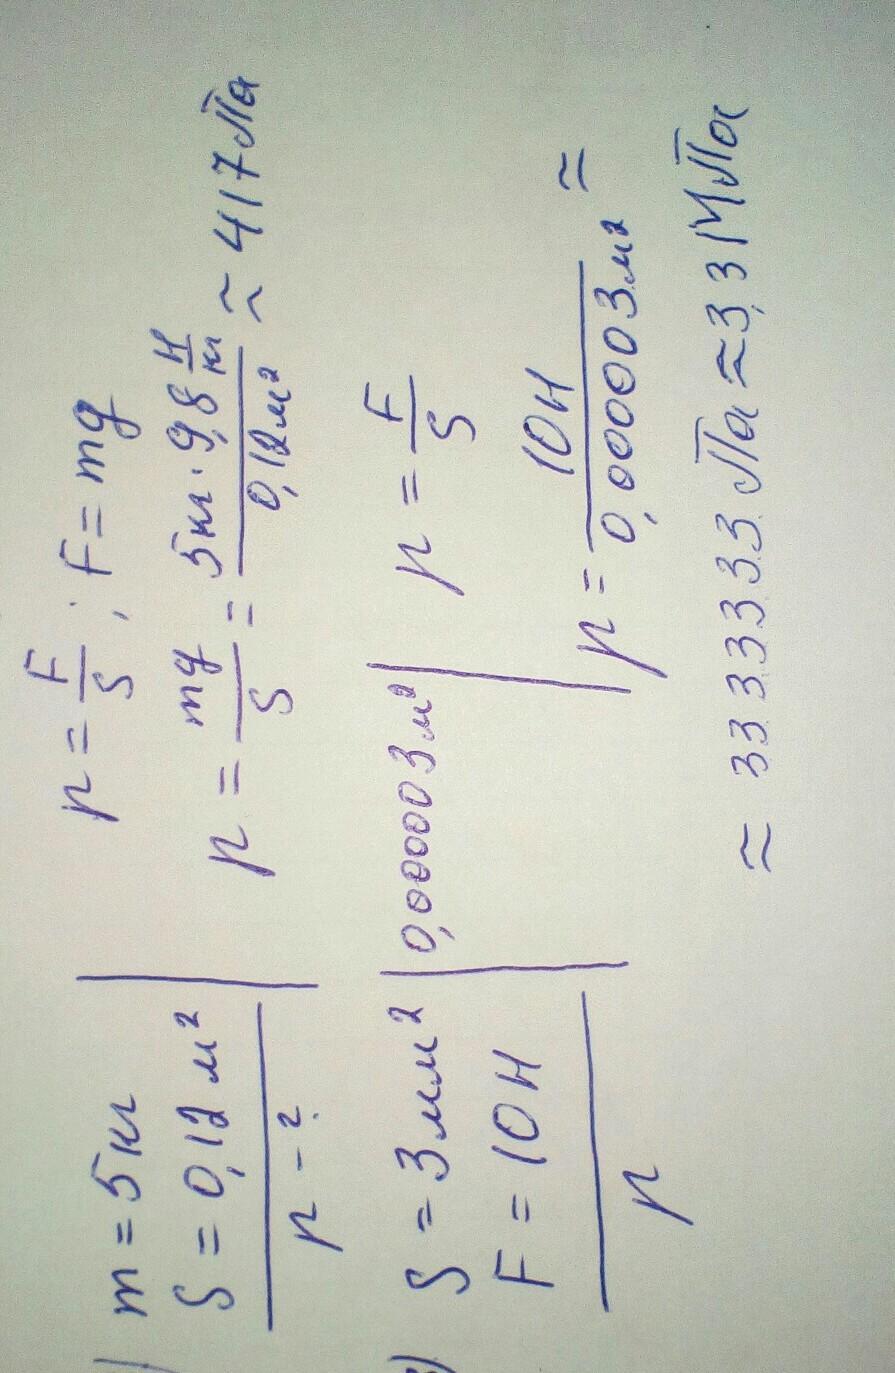 ) m = 5 кг
S = 0,12 м²
p - ?
p = F/S ; F = mg
p = mg/S = 5 кг · 9,8 Н/кг / 0,12 м² ≈ 417 Па
) S = 3 мм² | 0,000003 м²
F = 10 Н
p
p = F/S
p = 10 Н / 0,000003 м² ≈
≈ 3333333 Па ≈ 3,3 МПа